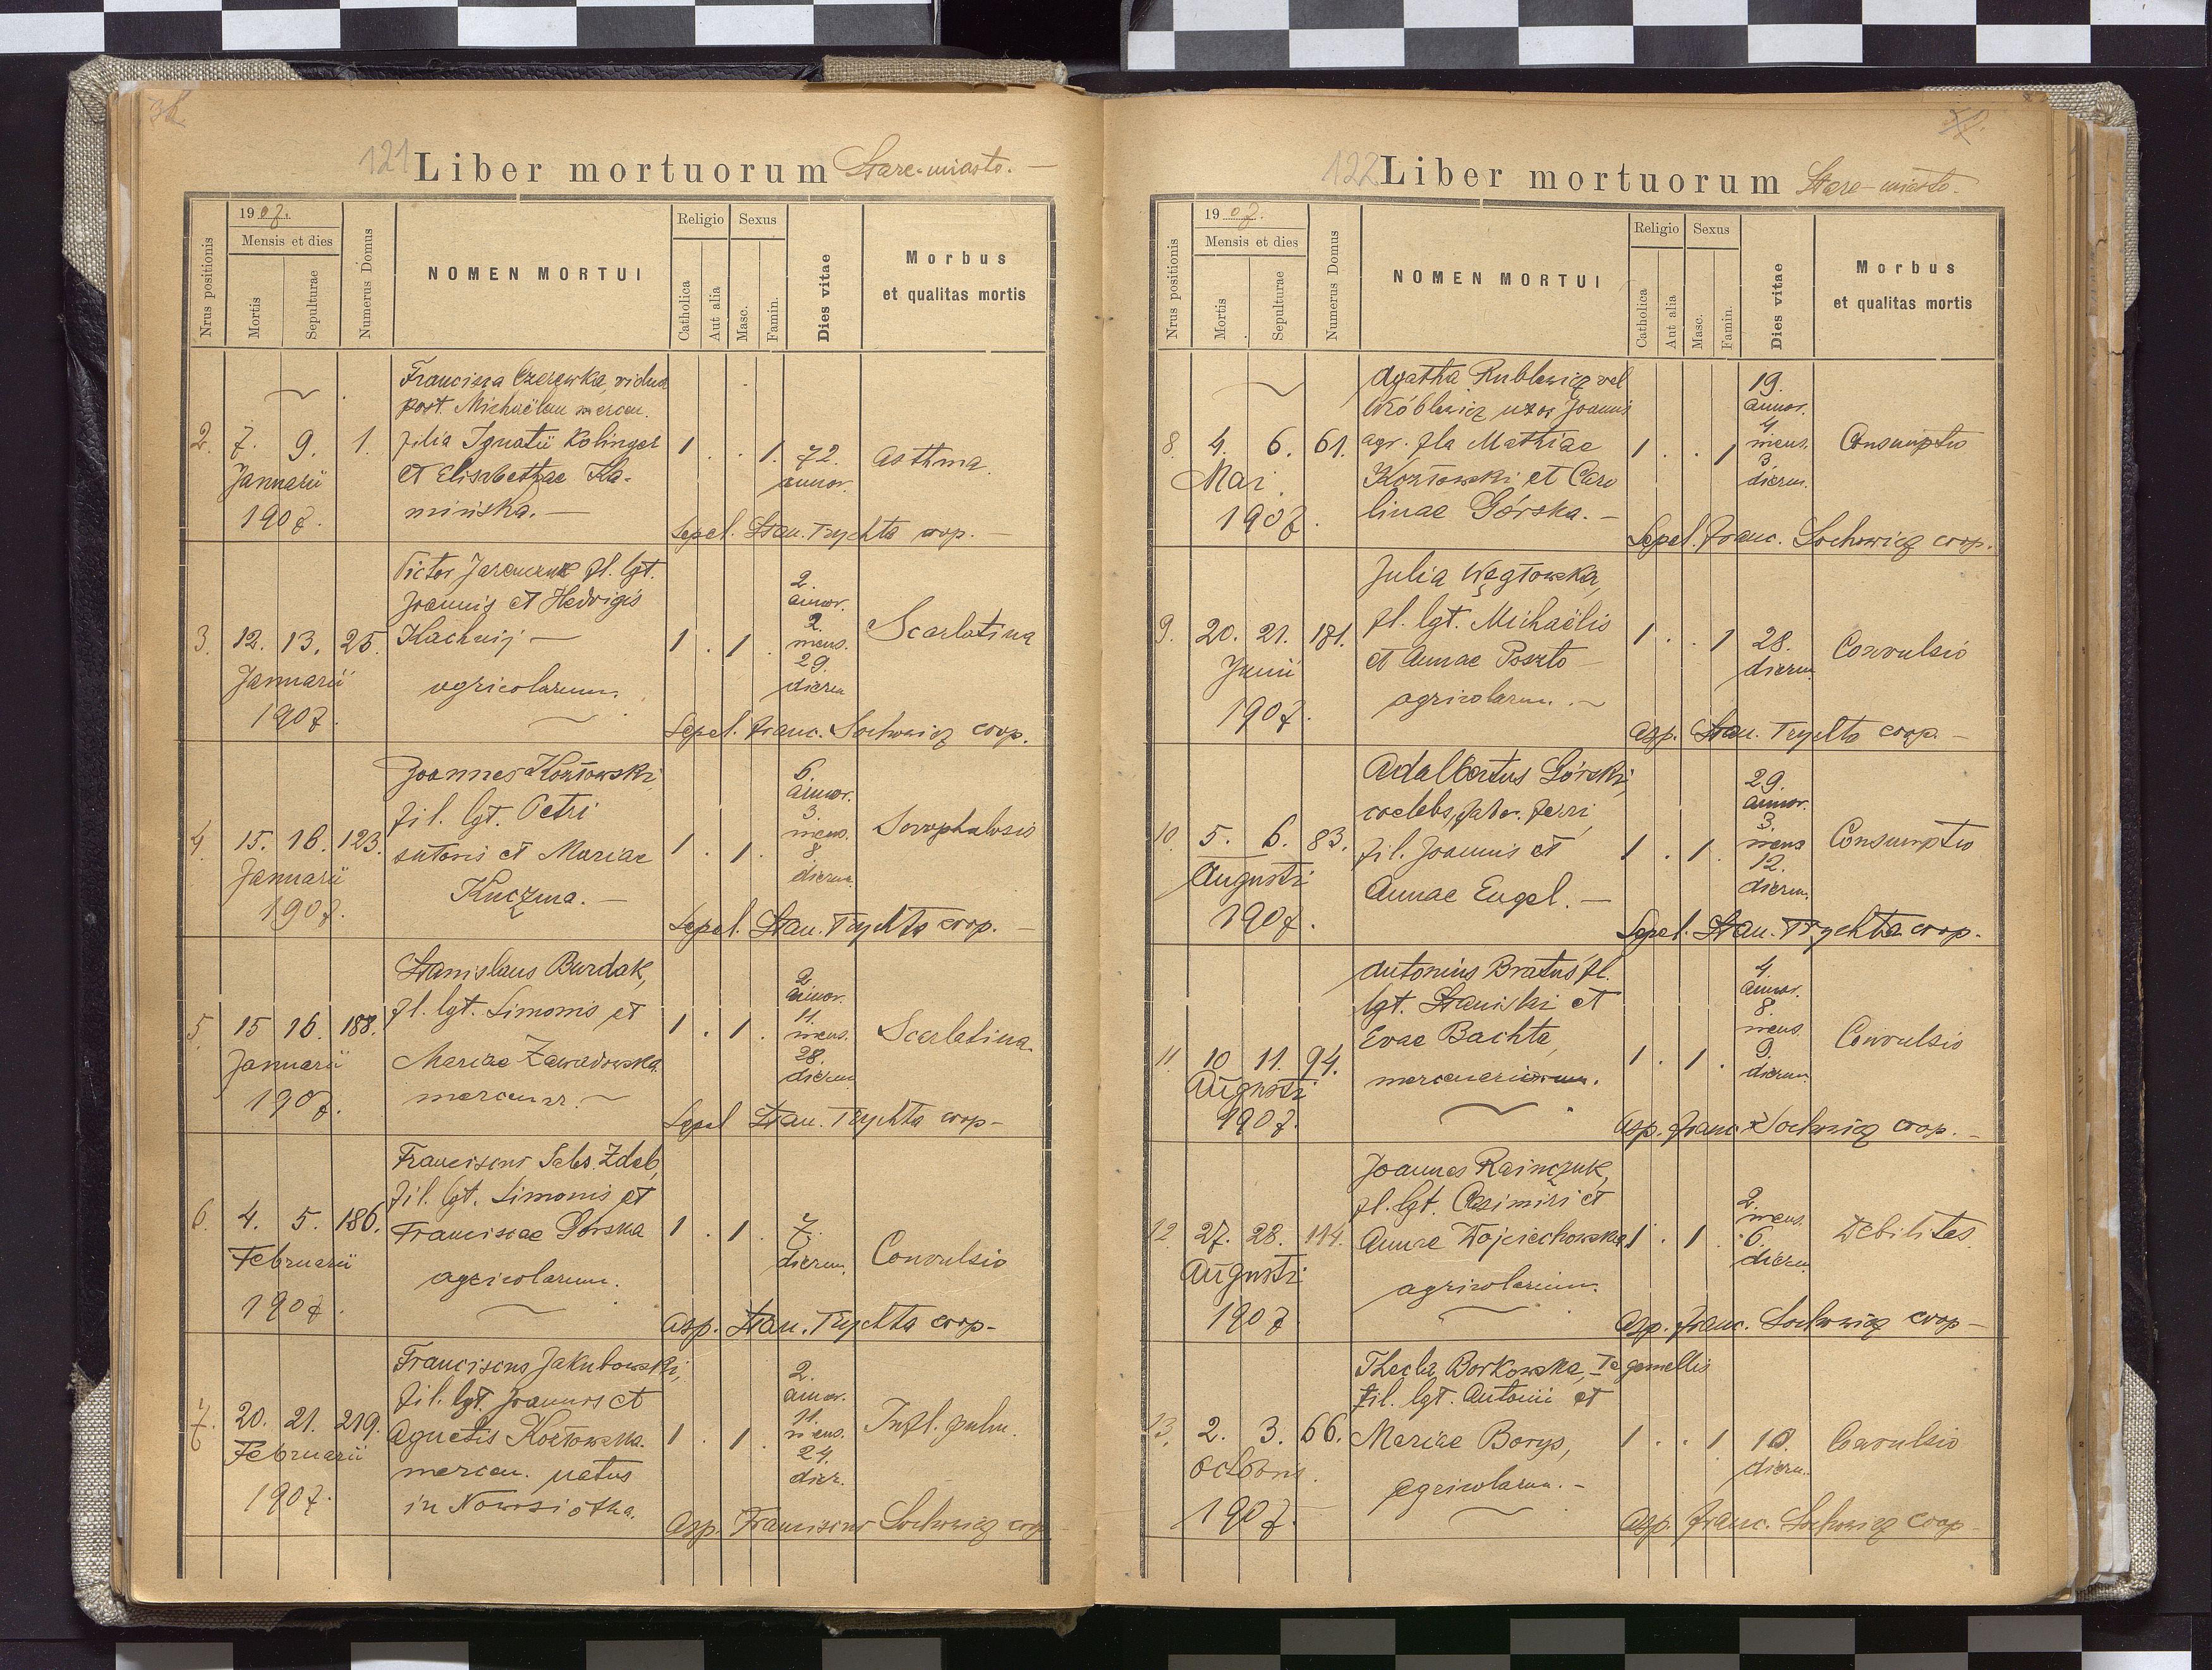 121 Liber mortuorum Stare-miasto. —
1907.
Mensis et dies
Religio
Sexus
Nrus positionis
Mortis
Sepulturae
Numerus Domus
NOMEN MORTUI
Catholica
Aut alia
Masc.
Famin.
Dies vitae
Morbus
et qualitas mortis
Francisca Czerewka, vidua
post. Michaëlem mercen.
2. 7. 9. 1. filia Ignatii Kolinger 1 . . 1. 72. Asthma.
Januarii et Elisabethae Ka- annor.
1907. mińska. —
Sepel. Stan. Trychta coop. —
Victor Jaremczuk fl. lgt. 2.
Joannis et Hedvigis annor.
3. 12. 13. 25. Kachnij — 1 . 1 . 2. mens. Scarlatina
Januarii agricolarum. 29. dierum
1907.
Sepel. Franc. Sochowicz coop.
Joannes Kozłowski, 6.
fil. lgt. Petri annor. 3.
4. 15. 16. 123. sutoris et Mariae 1 . 1 . mens. 8 Scrophulosis
Januarii Kuczma. — dierum.
1907.
Sepel. Stan. Trychta coop. —
Stanislaus Burdak, 2
annor.
5. 15 16. 188. fl. lgt. Simonis et 1 . 1 . 11. mens. Scarlatina.
Januarii Mariae Zawadowska 28. dierum
1907. mercenar. —
Sepel Stan. Trychta coop —
Franciscus Sales. Zdeb,
fil. lgt. Simonis et
6. 4. 5. 186. Franciscae Górska 1 . 1 . 7. Convulsio
Februarii agricolarum. dierum.
1907.
Asp. Stan. Trychta coop —
Franciscus Jakubowski, 2.
fil. lgt. Joannis et annor.
7. 20. 21. 219. Agnetis Kozłowska. 1 . 1 . 11. mens. Infl. pulm.
Februarii mercen. natus 24.
1907. in dier.
Asp. Franciscus Sochowicz coop
122 Liber mortuorum Stare-miasto.
1907.
Mensis et dies
Religio
Sexus
Nrus positionis
Mortis
Sepulturae
Numerus Domus
NOMEN MORTUI
Catholica
Aut alia
Masc.
Famin.
Dies vitae
Morbus
et qualitas mortis
Agatha Rublewicz vel 19.
Wróblewicz uxor Joannis annor.
8. 4. 6. 61. agr. fla Mathiae 1 . . 1 4 mens. Consumptio
Mai Kozłowski et Caro 3 dierum.
1907. linae Górska. —
Sepel. Franc. Sochowicz coop.
Julia Węgłowska,
fl. lgt. Michaëlis
9. 20. 21. 181. et Annae Poszto — 1 . . 1 28. Convulsio
Junii agricolarum. — dierum.
1907.
Asp. Stan. Trychta coop. —
Adalbertus Górski, 29.
coelebs, faber. ferri, annor. 3.
10. 5. 6. 83. fil. Joannis et 1 . 1 . mens 12. Consumptio
Augusti Annae Engel. — dierum.
1907.
Sepel. Stan. Trychta coop.
Antonius Bratuś fl. 4.
lgt. Stanislai et annor. 8.
Evae Bachta, mens. Convulsio
11. 10 11. 94. mercenariorum. 1 . 1 . 9. dierum.
Augusti
1907.
Asp. Franc. Sochowicz coop. —
Joannes Rainczuk,
fl. lgt. Casimiri et 2.
12. 27. 28. 114. Annae Wojciechowska 1 . 1 . mens. 6. Debilitas
Augusti agricolarum. dierum
1907
Asp. Franc. Sochowicz coop —
Thecla Borkowska, — gemellis
fil. lgt. Antonii et
13. 2. 3. 66. Mariae Borys, 1 . . 1 10. Convulsio
Octobris. agricolarum. — dierum.
1907.
Asp. Franc. Sochowicz coop —